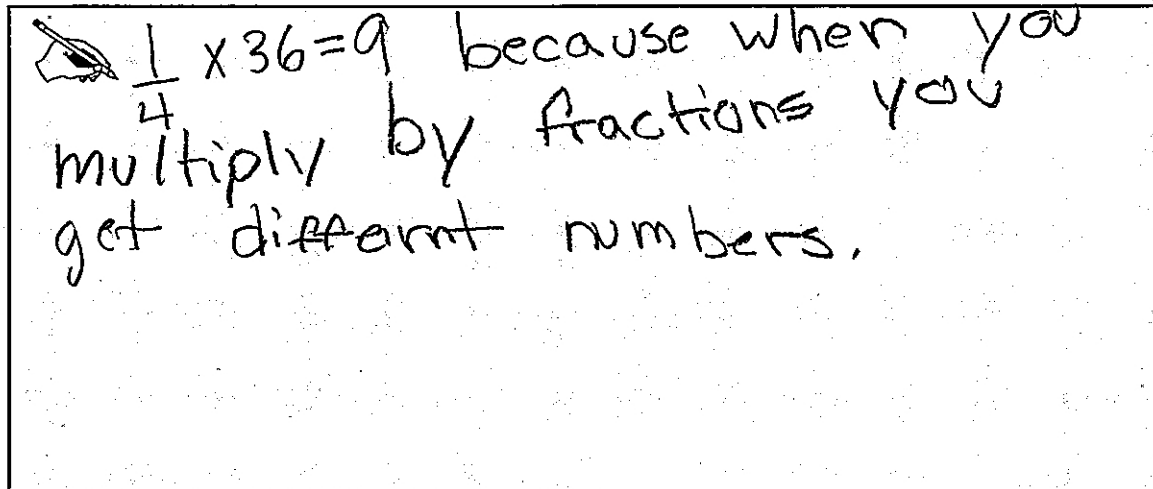 1/4 x 36 = 9 because when you
multiply by fractions you
get differnt numbers.